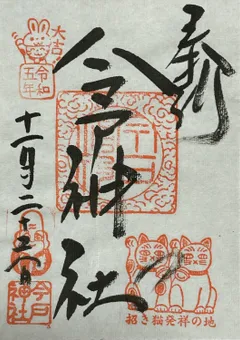 奉拝
今戸神社
十一月二十六日
大吉
令和
五年
今戸
神社
招き猫発祥の地